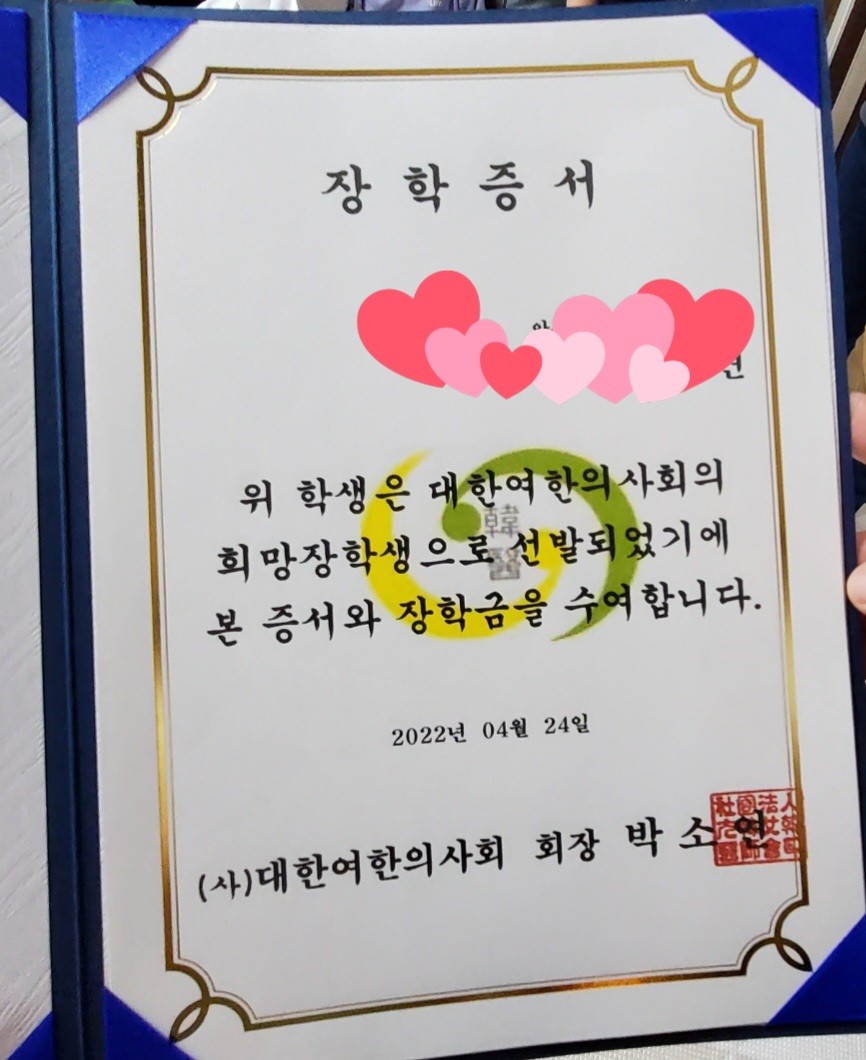 장학증서
위 학생은 대한여한의사회의
희망장학생으로 선발되었기에
본 증서와 장학금을 수여합니다.
韓
醫
2022년 04월 24일
(사)대한여한의사회 회장 박소연